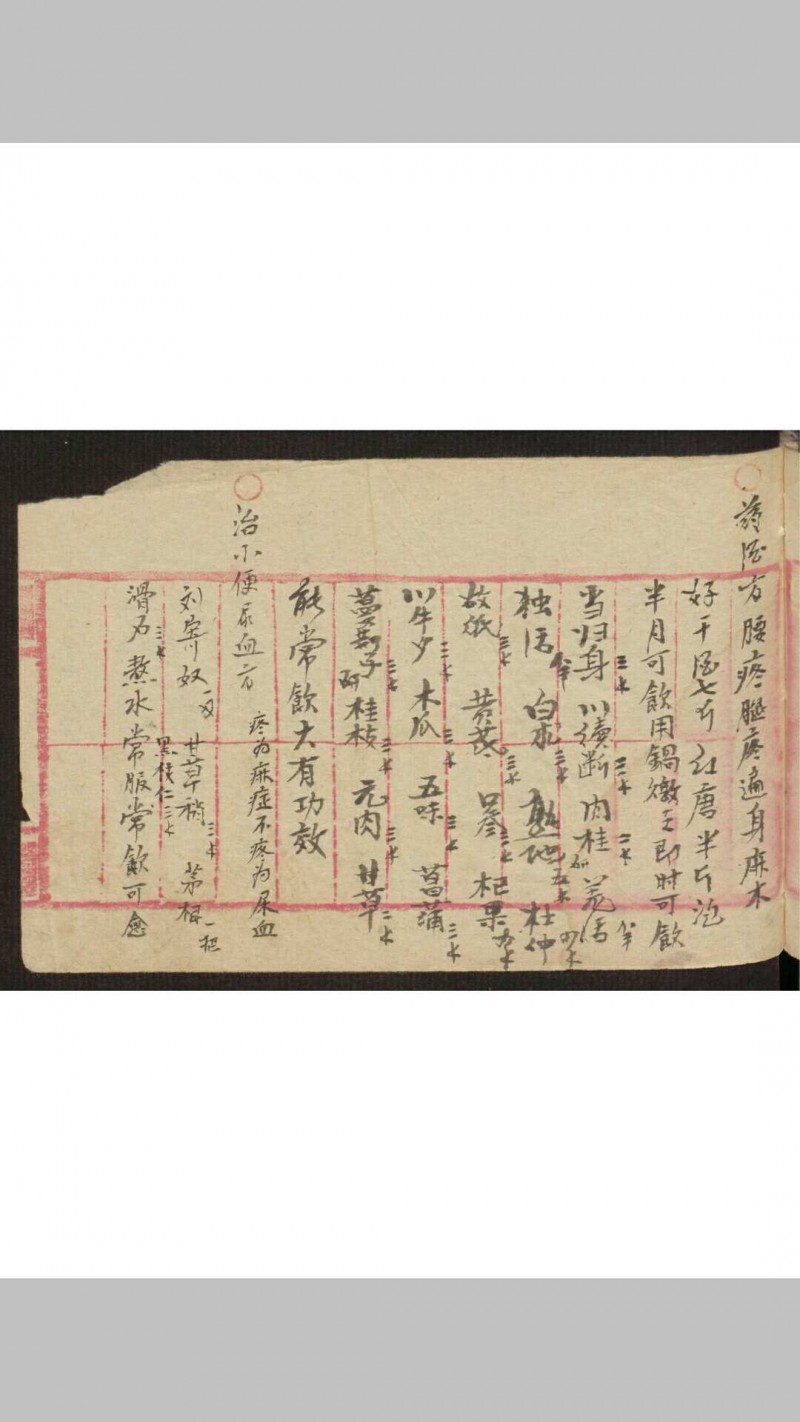 药酒方腰疼腿疼遍身麻木
好干酒七斤红唐半斤泡
半月可飲用鍋燉之即时可飲
当归身三钱川續断三钱肉桂二钱羌活八分
独活八分白术三钱熟地五钱杜仲四钱
故纸三钱黄芪三钱口参三钱杞果九钱
川牛夕三钱木瓜三钱五味三钱菖蒲三钱
蔓荆子三钱研桂枝三钱元肉三钱甘草二钱
能常飲大有功效
治小便尿血方
疼为麻症不疼为尿血
刘寄奴一钱甘草稍三钱茅根一把
滑石三钱黑梔仁三钱熬水常服常飲可愈